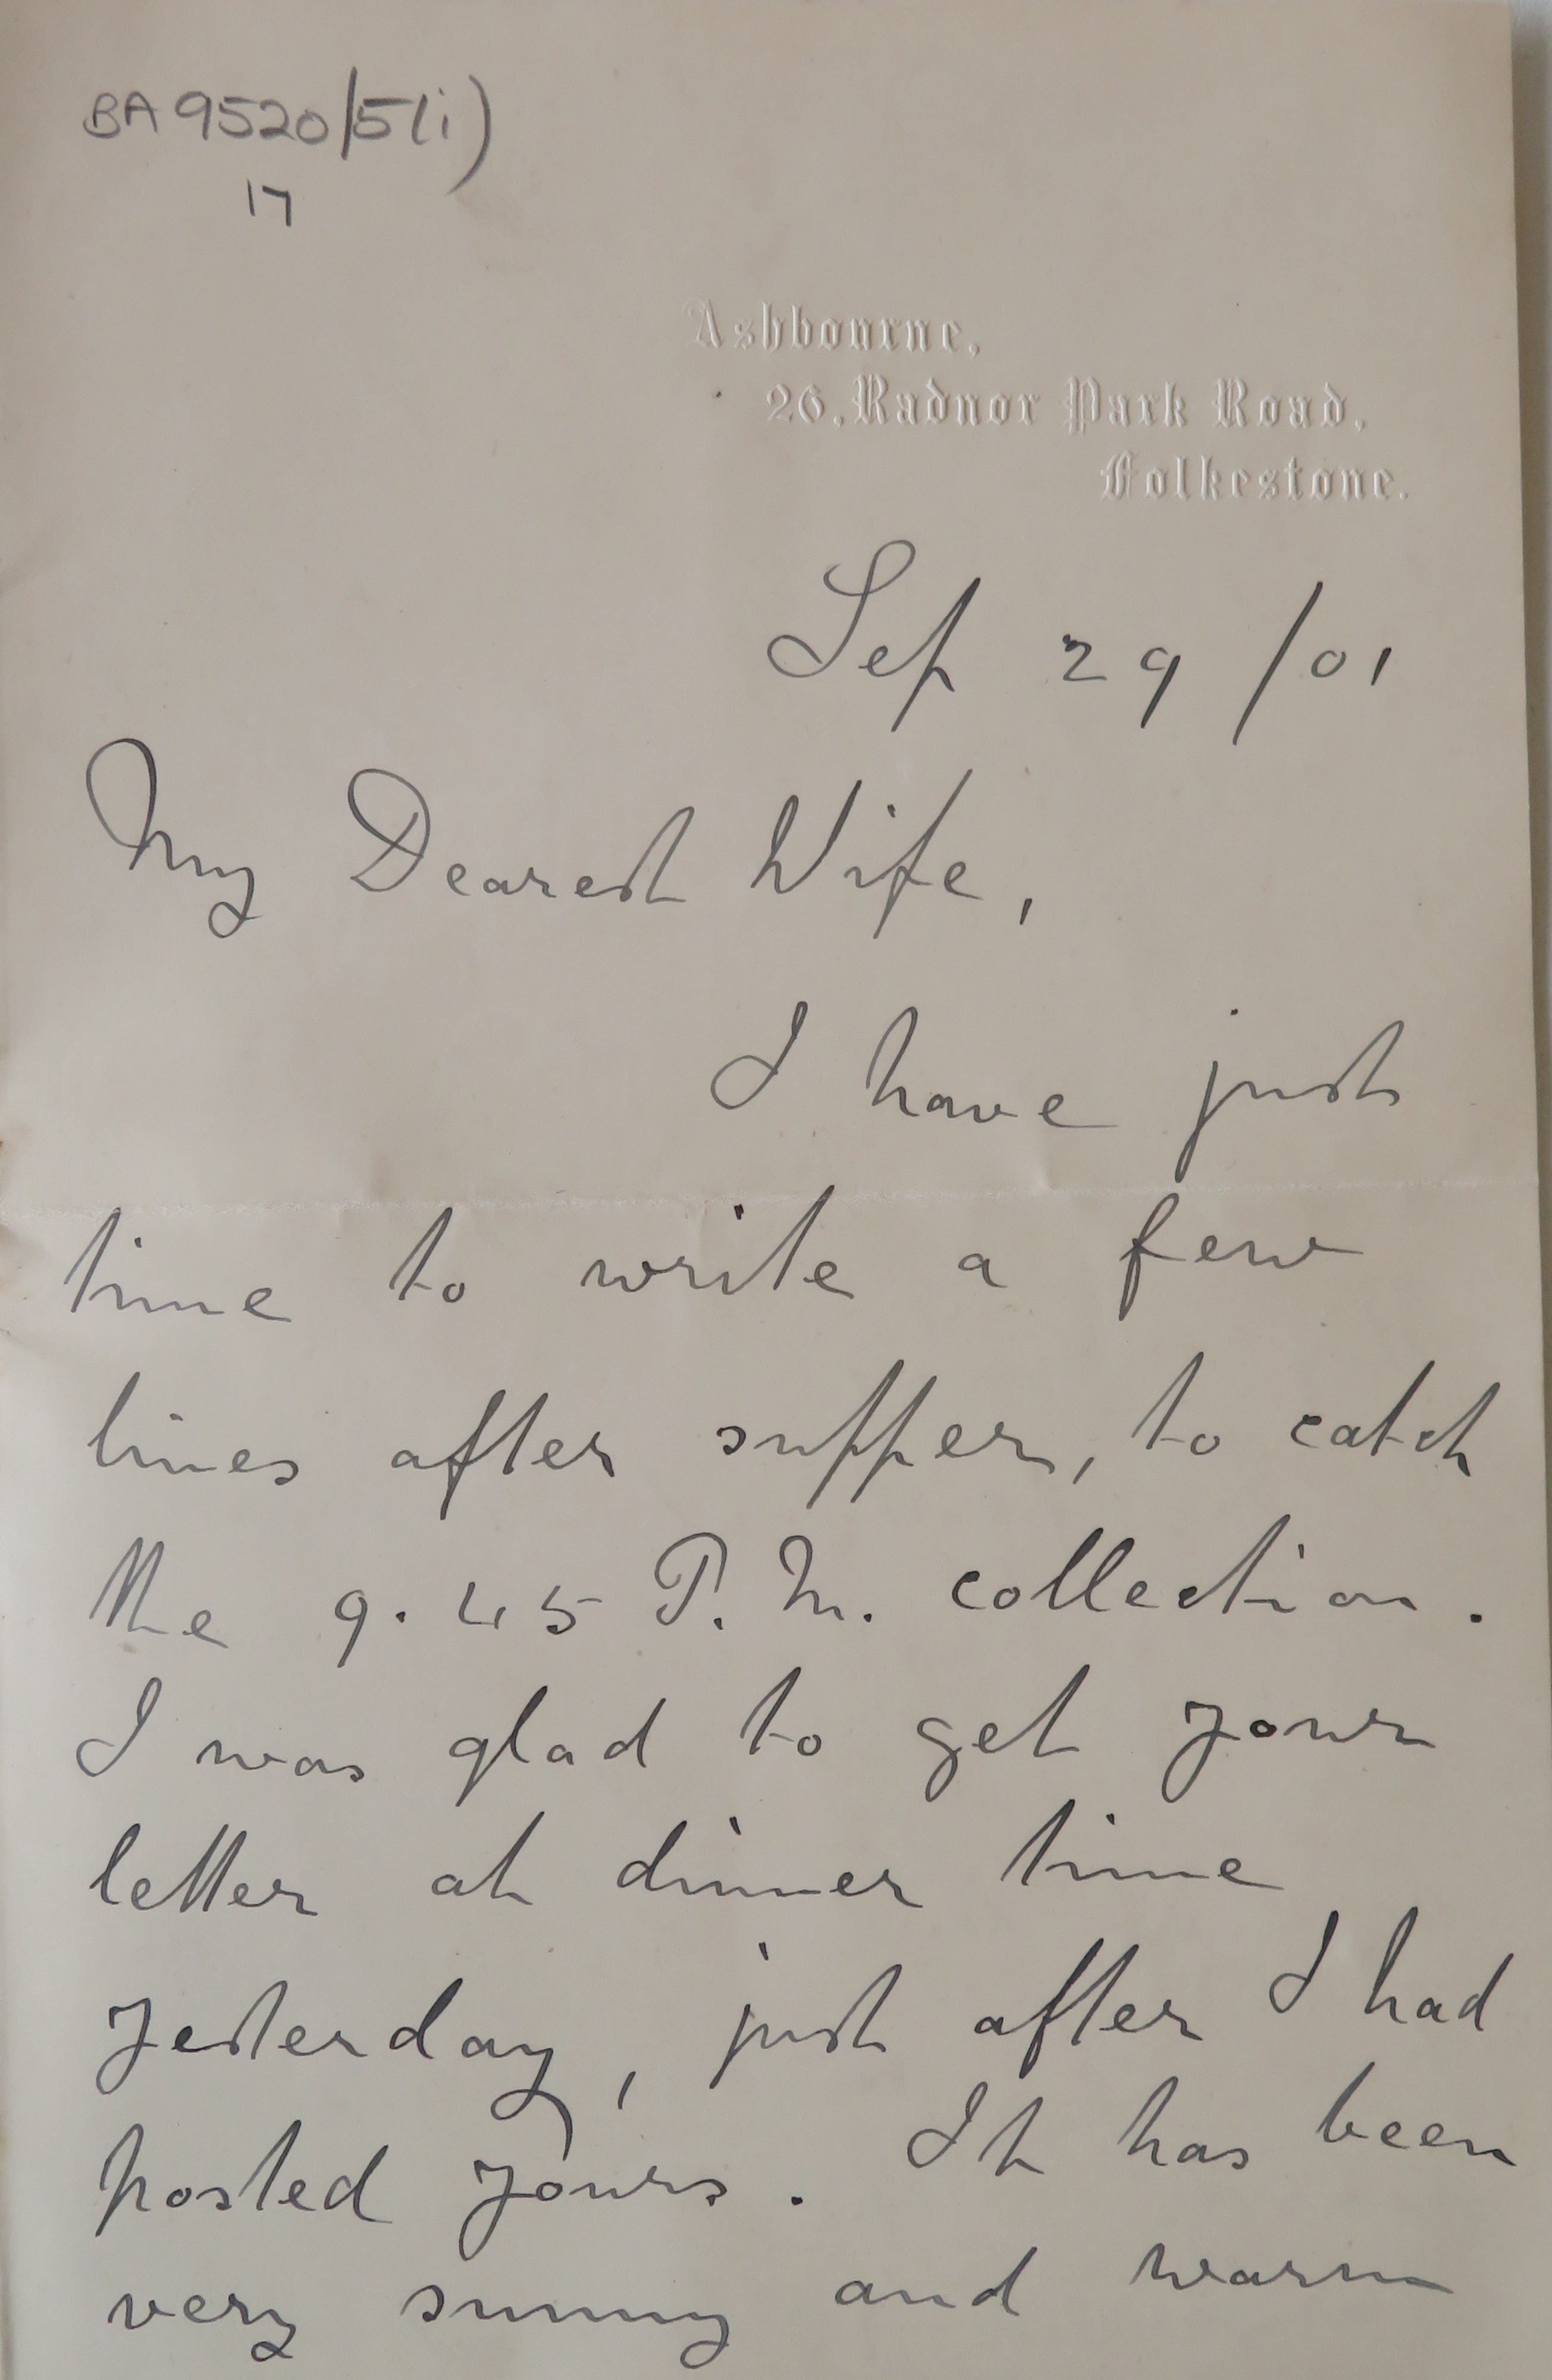 BA 9520/5(i)
17
Ashbourne,
26, Radnor Park Road,
Folkestone.
Sep 29/01
My Dearest Wife,
I have just
time to write a few
lines after supper, to catch
the 9.45 P.M. collection.
I was glad to get your
letter at dinner time
yesterday, just after I had
posted yours. It has been
very sunny and warm